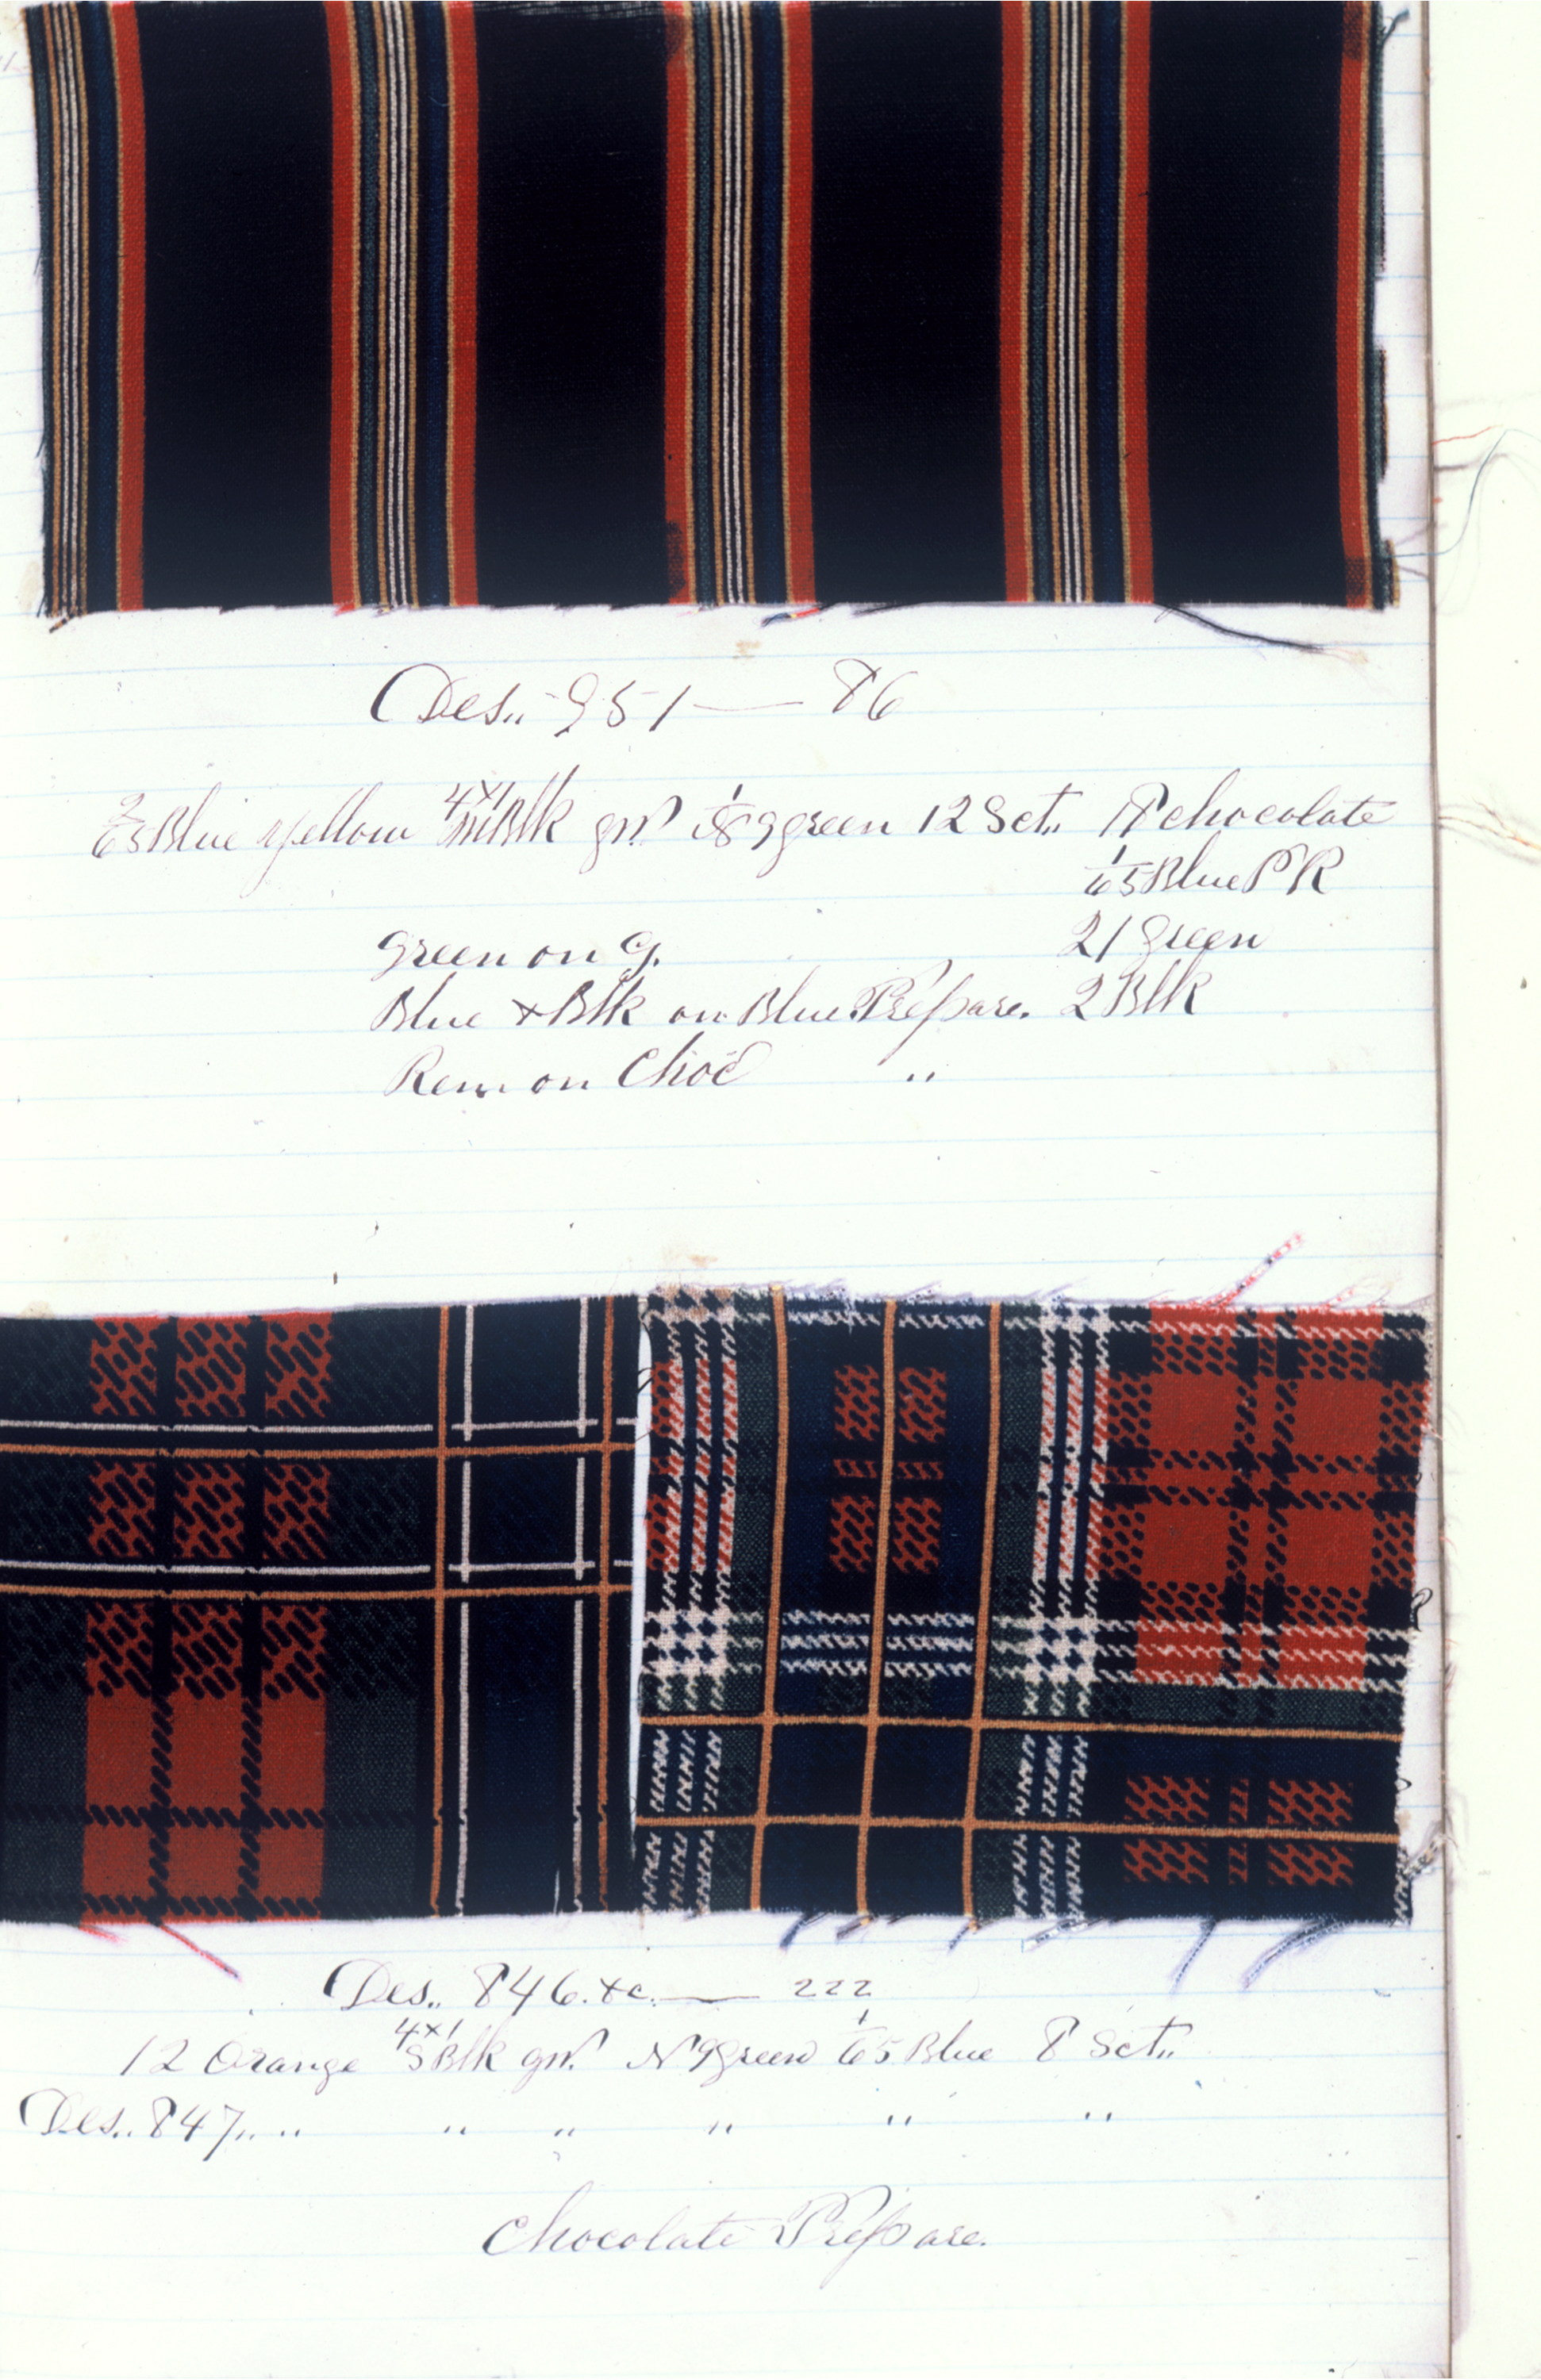 Des.. 951 — 86
2/65 Blue yellow 4x1 Blk gn' 1/8 9 green 12 Sct.. 18 chocolate
1/65 Blue P R
green on G. 21 Green
Blue + Blk on Blue Prepare. 2 Blk
Rem. on Choc "
Des.. 846. &c. — 222
12 Orange 4x1 S Blk gn' N 9 green 1/65 Blue 8 Sct..
Des.. 847.. " " " " " "
Chocolate Prepare.